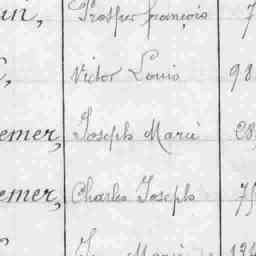 in, Prosper françois 7
Victor Louis 98
emer, Joseph Marie
emer, Charles Joseph 75
Marie 134